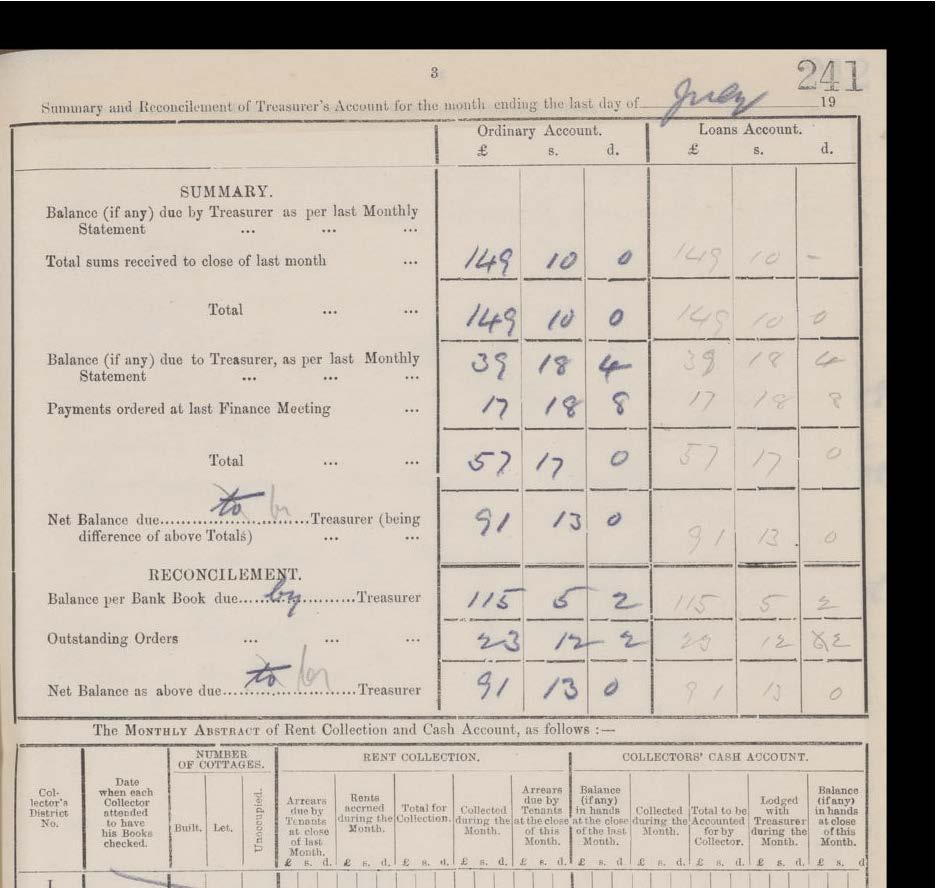 3
241
Summary and Reconcilement of Treasurer's Account for the month ending the last day of July 19
Ordinary Account. Loans Account.
£ s. d. £ s. d.
SUMMARY.
Balance (if any) due by Treasurer as per last Monthly
Statement ... ... ...
Total sums received to close of last month ... 149 10 0 149 10 -
Total ... ... 149 10 0 149 10 0
Balance (if any) due to Treasurer, as per last Monthly
Statement ... ... ... 39 18 4 39 18 4
Payments ordered at last Finance Meeting ... 17 18 8 17 18 8
Total ... ... 57 17 0 57 17 0
Net Balance due to by Treasurer (being
difference of above Totals) ... ... 91 13 0 91 13 0
RECONCILEMENT.
Balance per Bank Book due by Treasurer 115 5 2 115 5 2
Outstanding Orders ... ... ... 23 12 2 23 12 2
Net Balance as above due to by Treasurer 91 13 0 91 13 0
The MONTHLY ABSTRACT of Rent Collection and Cash Account, as follows :—
NUMBER OF COTTAGES. RENT COLLECTION. COLLECTORS' CASH ACCOUNT.
Collector's District No.
Date when each Collector attended to have his Books checked.
Built.
Let.
Unoccupied.
Arrears due by Tenants at close of last Month.
Rents accrued during the Month.
Total for Collection.
Collected during the Month.
Arrears due by Tenants at the close of this Month.
Balance (if any) in hands at the close of the last Month.
Collected during the Month.
Total to be Accounted for by Collector.
Lodged with Treasurer during the Month.
Balance (if any) in hands at close of this Month.
£ s. d. £ s. d. £ s. d. £ s. d. £ s. d. £ s. d. £ s. d. £ s. d. £ s. d. £ s. d
I